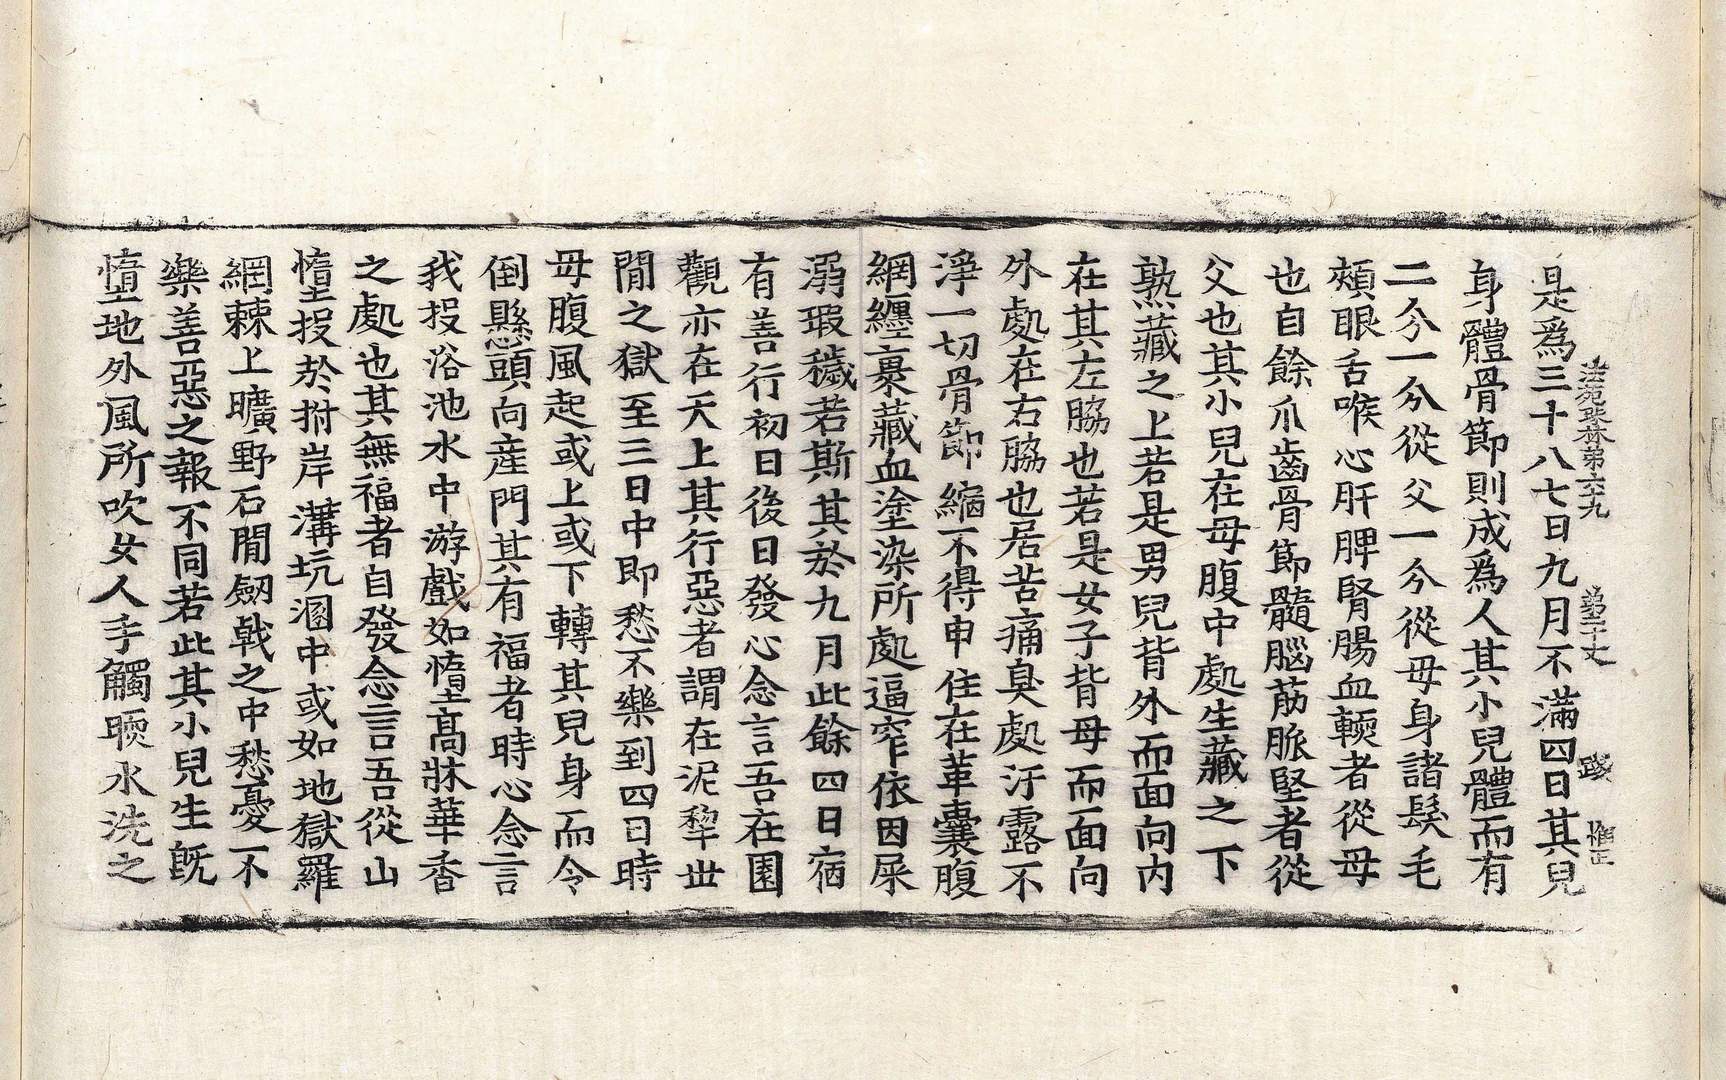 法苑珠林第六十九　第二十丈　踐　惟正
是爲三十八七日九月不滿四日其兒
身體骨節則成爲人其小兒體而有
二分一分從父一分從母身諸髮毛
頰眼舌喉心肝脾腎腸血輭者從母
也自餘爪齒骨節髓腦筋脈堅者從
父也其小兒在母腹中處生藏之下
熟藏之上若是男兒背外而面向内
在其左脇也若是女子背母而面向
外處在右脇也居苦痛臭處汙露不
淨一切骨節縮不得申住在革囊腹
網纏裹藏血塗染所處逼窄依因屎
溺瑕穢若斯其於九月此餘四日宿
有善行初日後日發心念言吾在園
觀亦在天上其行惡者謂在泥犂世
閒之獄至三日中即愁不樂到四日時
母腹風起或上或下轉其兒身而令
倒懸頭向産門其有福者時心念言
我投浴池水中游戲如墮高牀華香
之處也其無福者自發念言吾從山
墮投於拊岸溝坑溷中或如地獄羅
網棘上曠野石閒劒戟之中愁憂不
樂善惡之報不同若此其小兒生旣
墮地外風所吹女人手觸暖水洗之